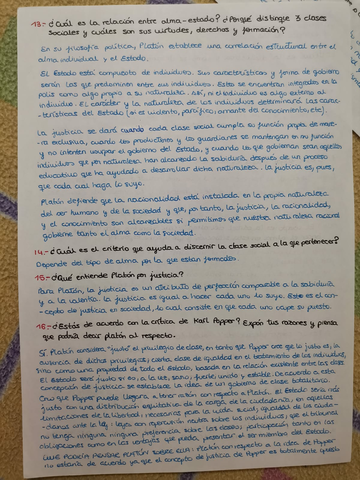 13.- ¿Cuál es la relación entre alma-estado? ¿Porqué distingue 3 clases
sociales y cuáles son sus virtudes, derechos y formación?
En su filosofía política, Platón establece una correlación estructural entre el
alma individual y el Estado.
El Estado está compuesto de individuos. Sus características y forma de gobierno
serán las que predominen entre sus individuos. Estos se encuentran integrados en la
polis como algo propio a su naturaleza. Así, ni el individuo es algo externo al
individuo. El carácter y la naturaleza de los individuos determinará las carac-
terísticas del Estado (si es violento, pacífico, amante del conocimiento, etc).
La justicia se dará cuando cada clase social cumpla su función propia de mane-
ra exclusiva, cuando los productores y los guardianes se mantengan en su función
y no intenten usurpar el gobierno del Estado, y cuando los que gobiernan sean aquellos
individuos que por naturaleza han alcanzado la sabiduría después de un proceso
educativo que ha ayudado a desarrollar dicha naturaleza. La justicia es, pues,
que cada cual haga lo suyo.
Platón defiende que la racionalidad está instalada en la propia naturaleza
del ser humano y de la sociedad y que, por tanto, la justicia, la racionalidad,
y el conocimiento son alcanzables si permitimos que nuestra naturaleza racional
gobierne tanto el alma como la sociedad.
14.- ¿Cuál es el criterio que ayuda a discernir la clase social a la que pertenecer?
Depende del tipo de alma por la que están formados.
15.- ¿Qué entiende Platón por justicia?
Para Platón, la justicia es un atributo de perfección comparable a la sabiduría
y a la valentía. La justicia es igual a hacer cada uno lo suyo. Este es el con-
cepto de justicia en sociedad, lo cual consiste en que cada uno cape su puesto.
16.- ¿Estás de acuerdo con la crítica de Karl Popper? Expón tus razones y piensa
que podría decir platón al respecto.
Sí. Platón considera "justo" el privilegio de clase, en tanto que Popper cree que lo justo es, la
ausencia de dichos privilegios; cierta clase de igualdad en el tratamiento de los individuos,
sino como una propiedad de todo el Estado, basada en la relación existente entre las clases
El Estado será justo si es, a la vez, sano, fuerte, unido y estable. De acuerdo a esta
concepción de justicia se establece la idea de un gobierno de clase totalitario.
Creo que Popper puede llegar a tener razón con respecto a Platón. El Estado sería más
justo con una distribución equitativa de la carga de la ciudadanía; en aquellas
limitaciones de la libertad necesarias para la vida social, igualdad de los ciuda-
danos ante la ley; leyes con repercusión neutra sobre los individuos; que el tribunal
no tenga ninguna ninguna preferencia sobre las clases; participación tanto en las
obligaciones como en las ventajas que pueda presentar el ser miembro del Estado.
Platón con respecto a la idea de Popper
no estaría de acuerdo ya que el concepto de justicia de Popper es totalmente opuesto